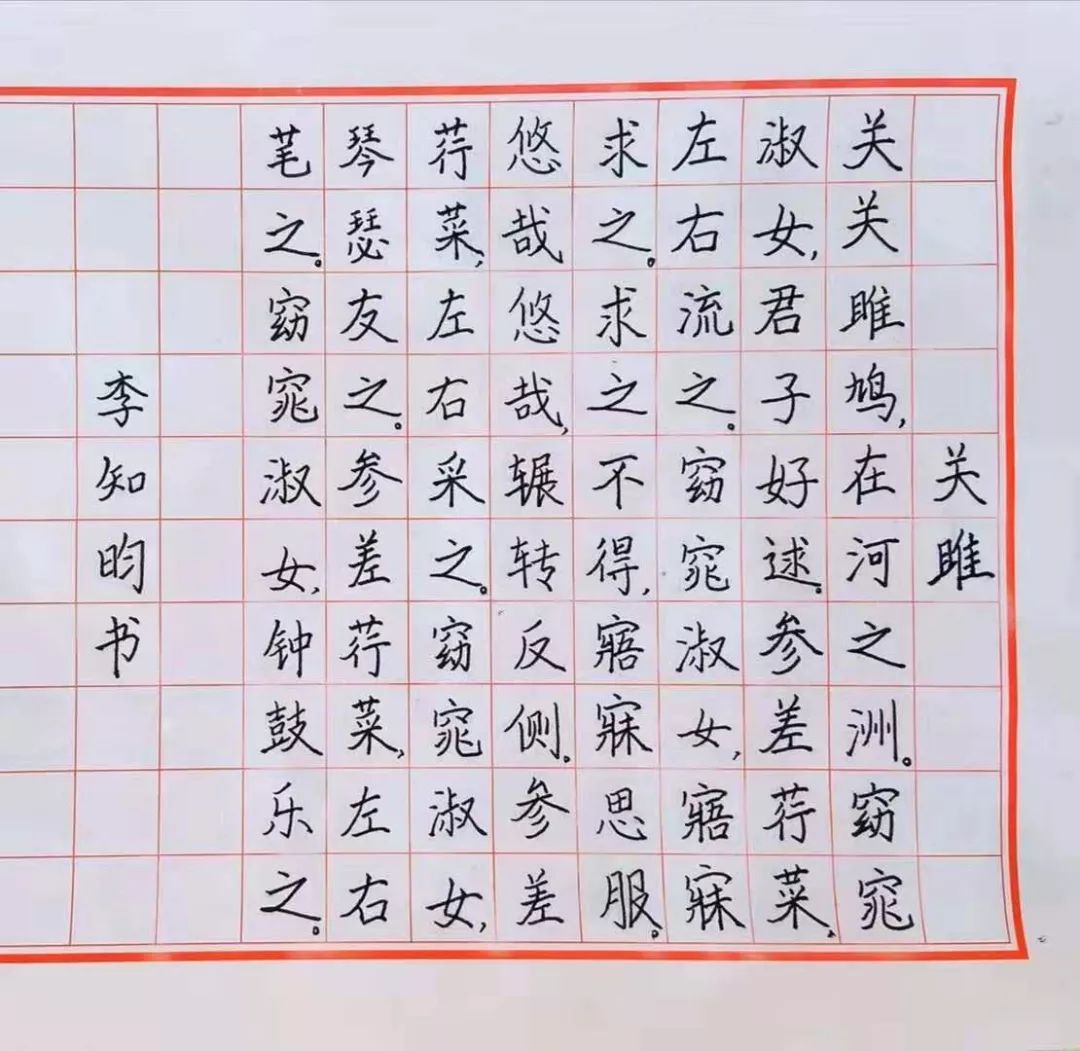 关雎
关关雎鸠,在河之洲。窈窕
淑女,君子好逑。参差荇菜,
左右流之。窈窕淑女,寤寐
求之。求之不得,寤寐思服。
悠哉悠哉,辗转反侧。参差
荇菜,左右采之。窈窕淑女,
琴瑟友之。参差荇菜,左右
芼之。窈窕淑女,钟鼓乐之。
李知昀书